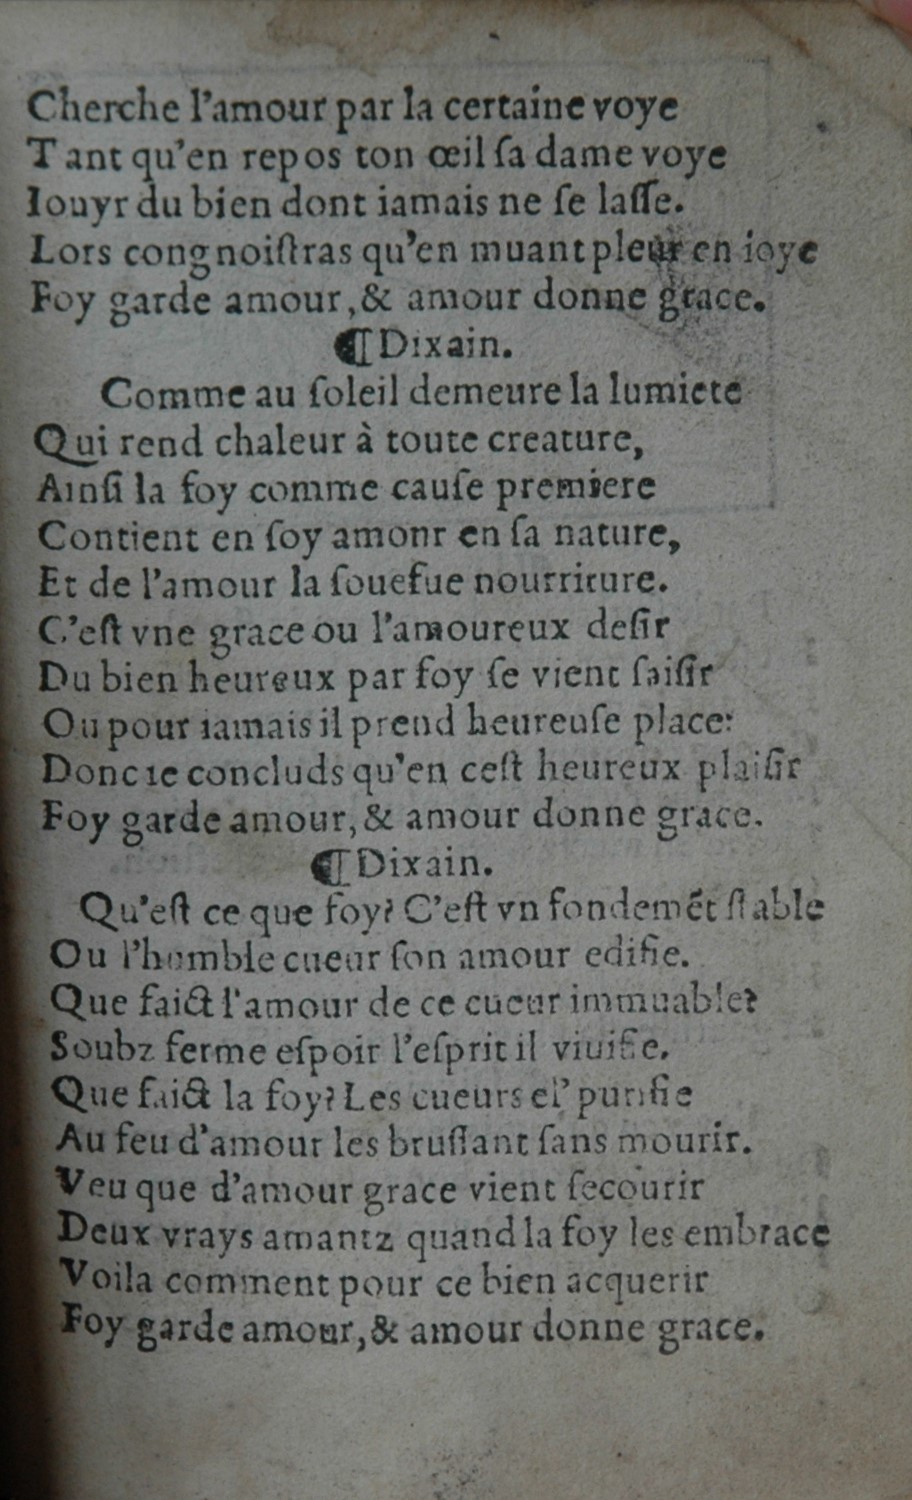 Cherche l'amour par la certaine voye
Tant qu'en repos ton œil ſa dame voye
Iouyr du bien dont iamais ne ſe laſſe.
Lors congnoiſtras qu'en muant pleur en ioye
Foy garde amour,& amour donne grace.
¶Dixain.
Comme au ſoleil demeure la lumiete
Qui rend chaleur à toute creature,
Ainſi la foy comme cauſe premiere
Contient en ſoy amonr en ſa nature,
Et de l'amour la ſouefue nourriture.
C'eſt vne grace ou l'amoureux deſir
Du bien heureux par foy ſe vient ſaiſir
Ou pour iamais il prend heureuſe place:
Donc ie concluds qu'en ceſt heureux plaiſir
Foy garde amour,& amour donne grace.
¶Dixain.
Qu'eſt ce que foy? C'eſt vn fondemẽt ſtable
Ou l'humble cueur ſon amour edifie.
Que faict l'amour de ce cueur immuable?
Soubz ferme eſpoir l'eſprit il viuifie.
Que faict la foy? Les cueurs el' purifie
Au feu d'amour les bruſlant ſans mourir.
Veu que d'amour grace vient ſecourir
Deux vrays amantz quand la foy les embrace
Voila comment pour ce bien acquerir
Foy garde amour,& amour donne grace.